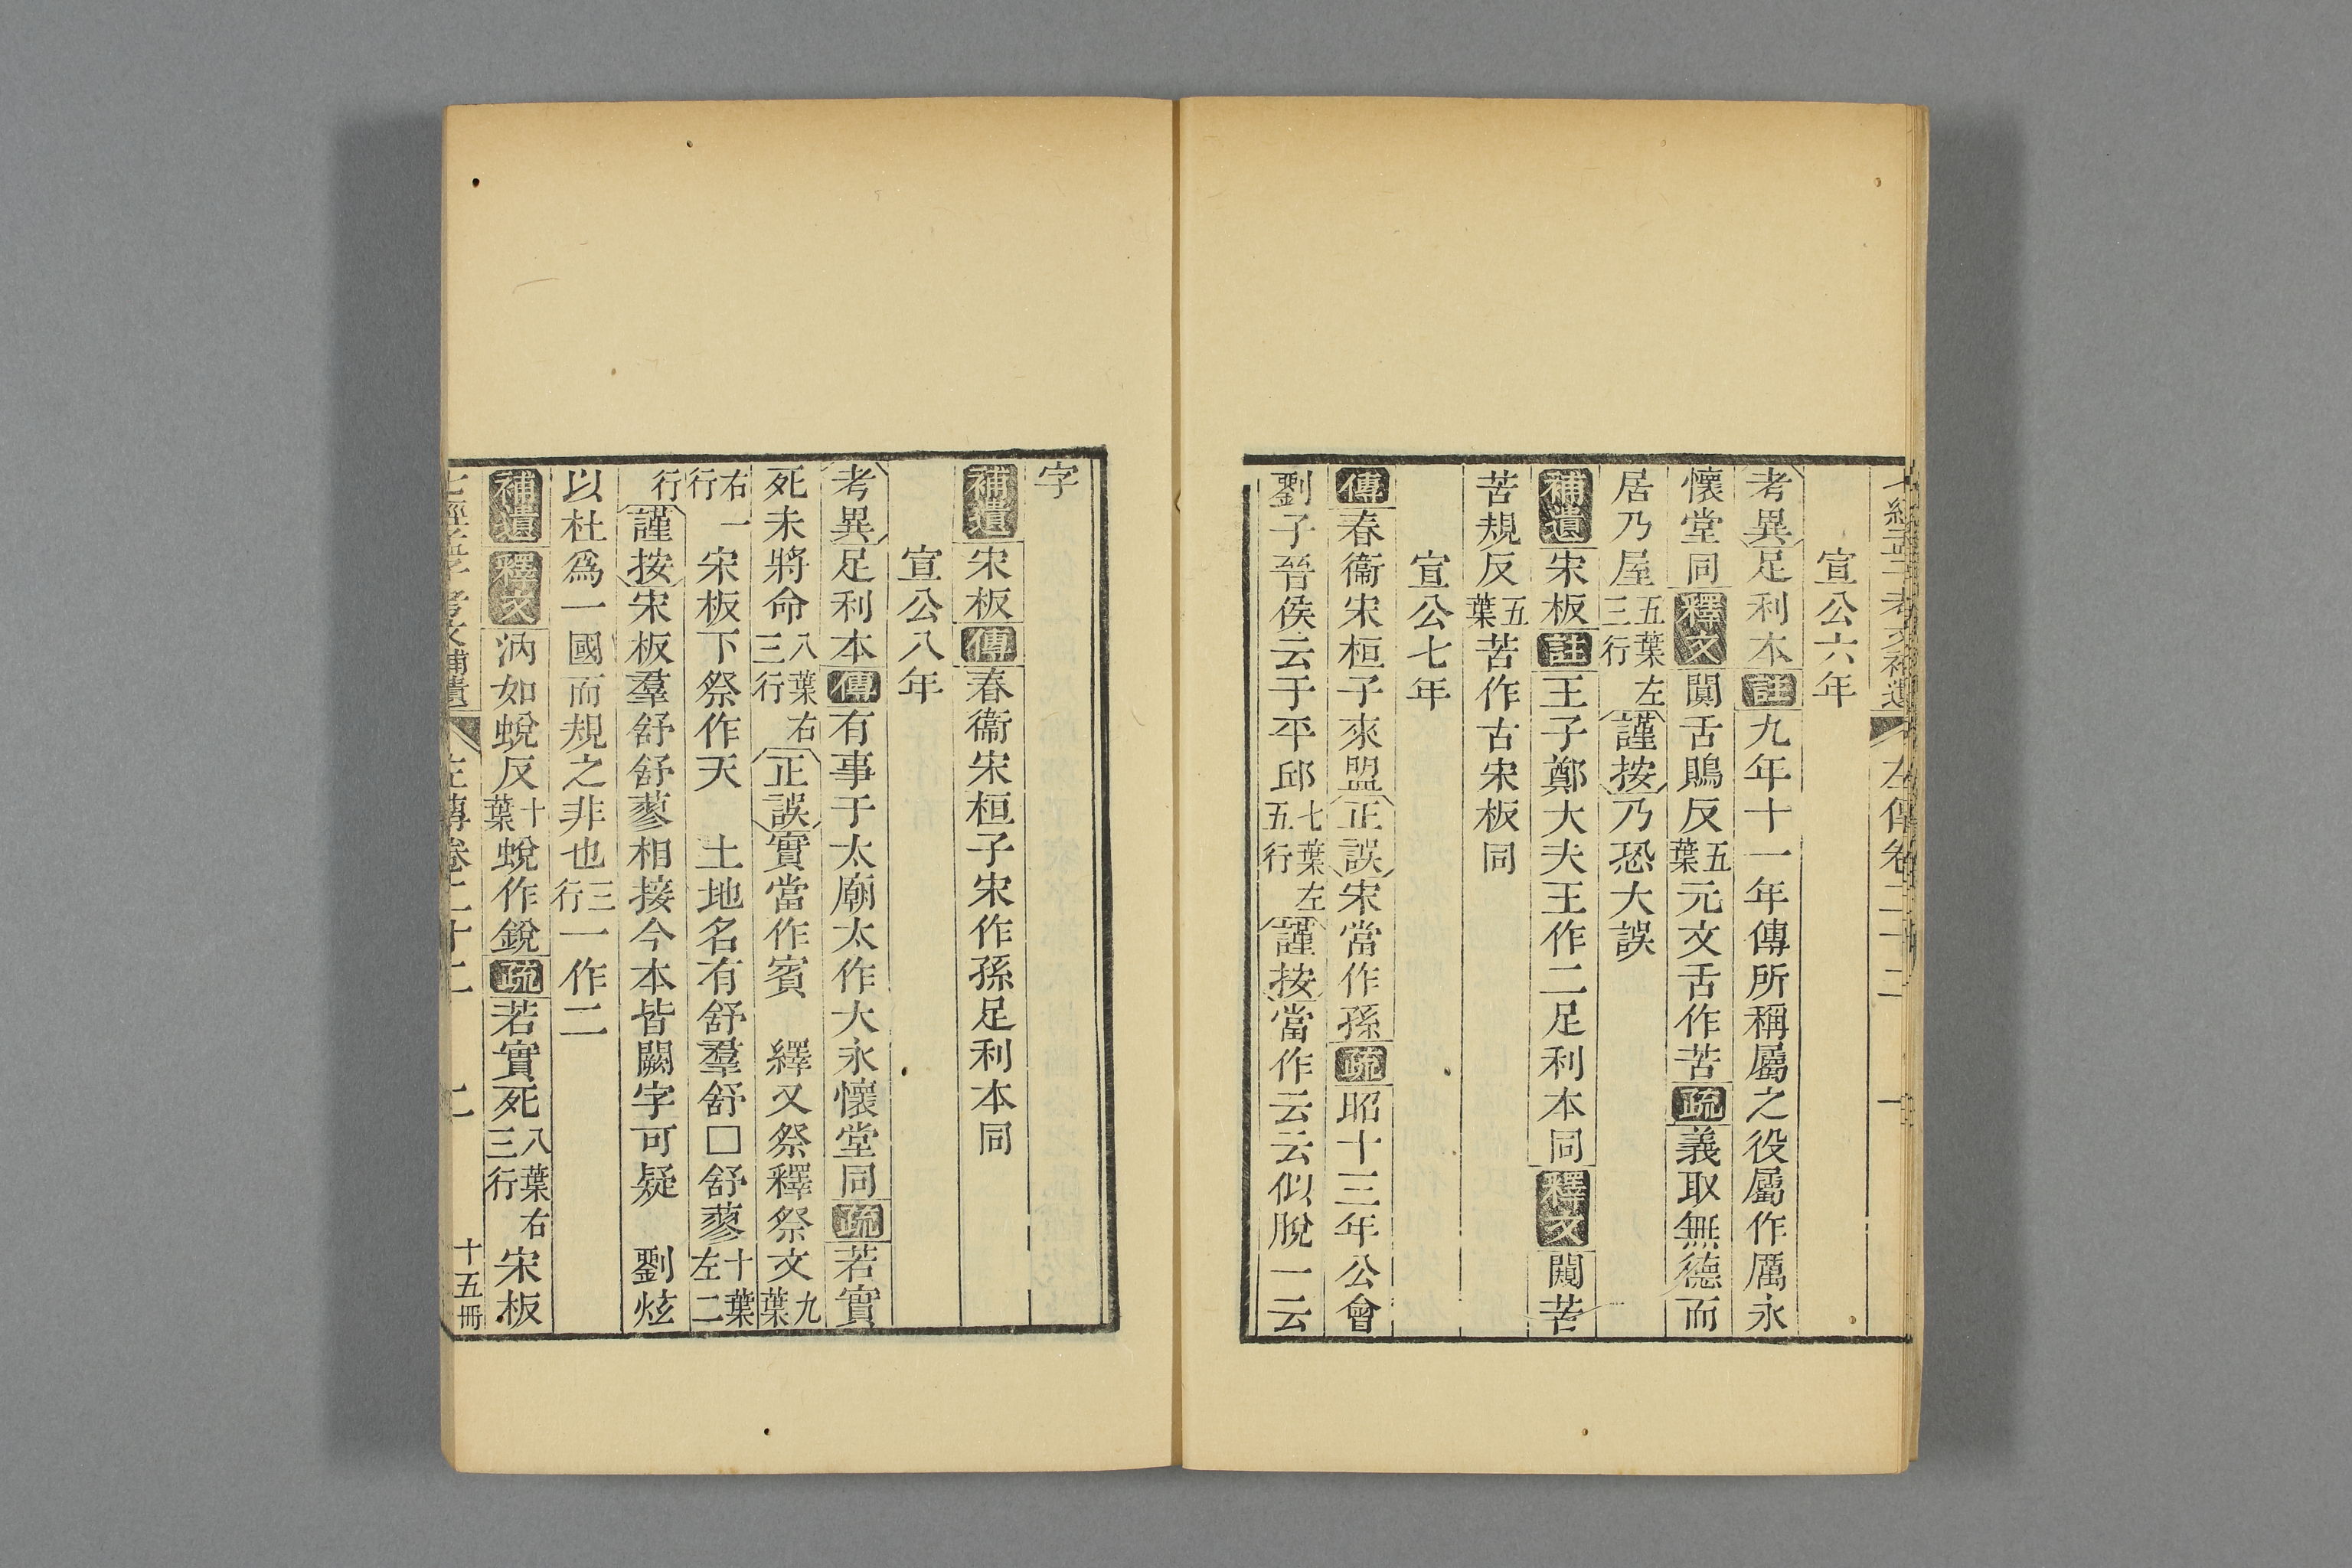 七經孟子考文補遺 左傳卷二十二 一
宣公六年
考異足利本註九年十一年傳所稱屬之役屬作厲永
懷堂同釋文闃舌鵙反五葉元文舌作苦疏義取無德而
居乃屋五葉左三行謹按乃恐大誤
補遺宋板註王子鄭大夫王作二足利本同釋文闃苦
苦規反五葉苦作古宋板同
宣公七年
傳春衞宋桓子來盟正誤宋當作孫疏昭十三年公會
劉子晉侯云于平邱七葉左五行謹按當作云云似脫一云
字
補遺宋板傳春衞宋桓子宋作孫足利本同
宣公八年
考異足利本傳有事于太廟太作大永懷堂同疏若實
死未將命八葉右三行正誤實當作賓 繹又祭釋祭文九葉
右一行宋板下祭作天 土地名有舒羣舒□舒蓼十葉左二
行謹按宋板羣舒舒蓼相接今本皆闕字可疑 劉炫
以杜爲一國而規之非也三行一作二
補遺釋文汭如蛻反十葉蛻作銳疏若實死八葉右三行宋板
七經孟子考文補遺 左傳卷二十二 二 十五冊